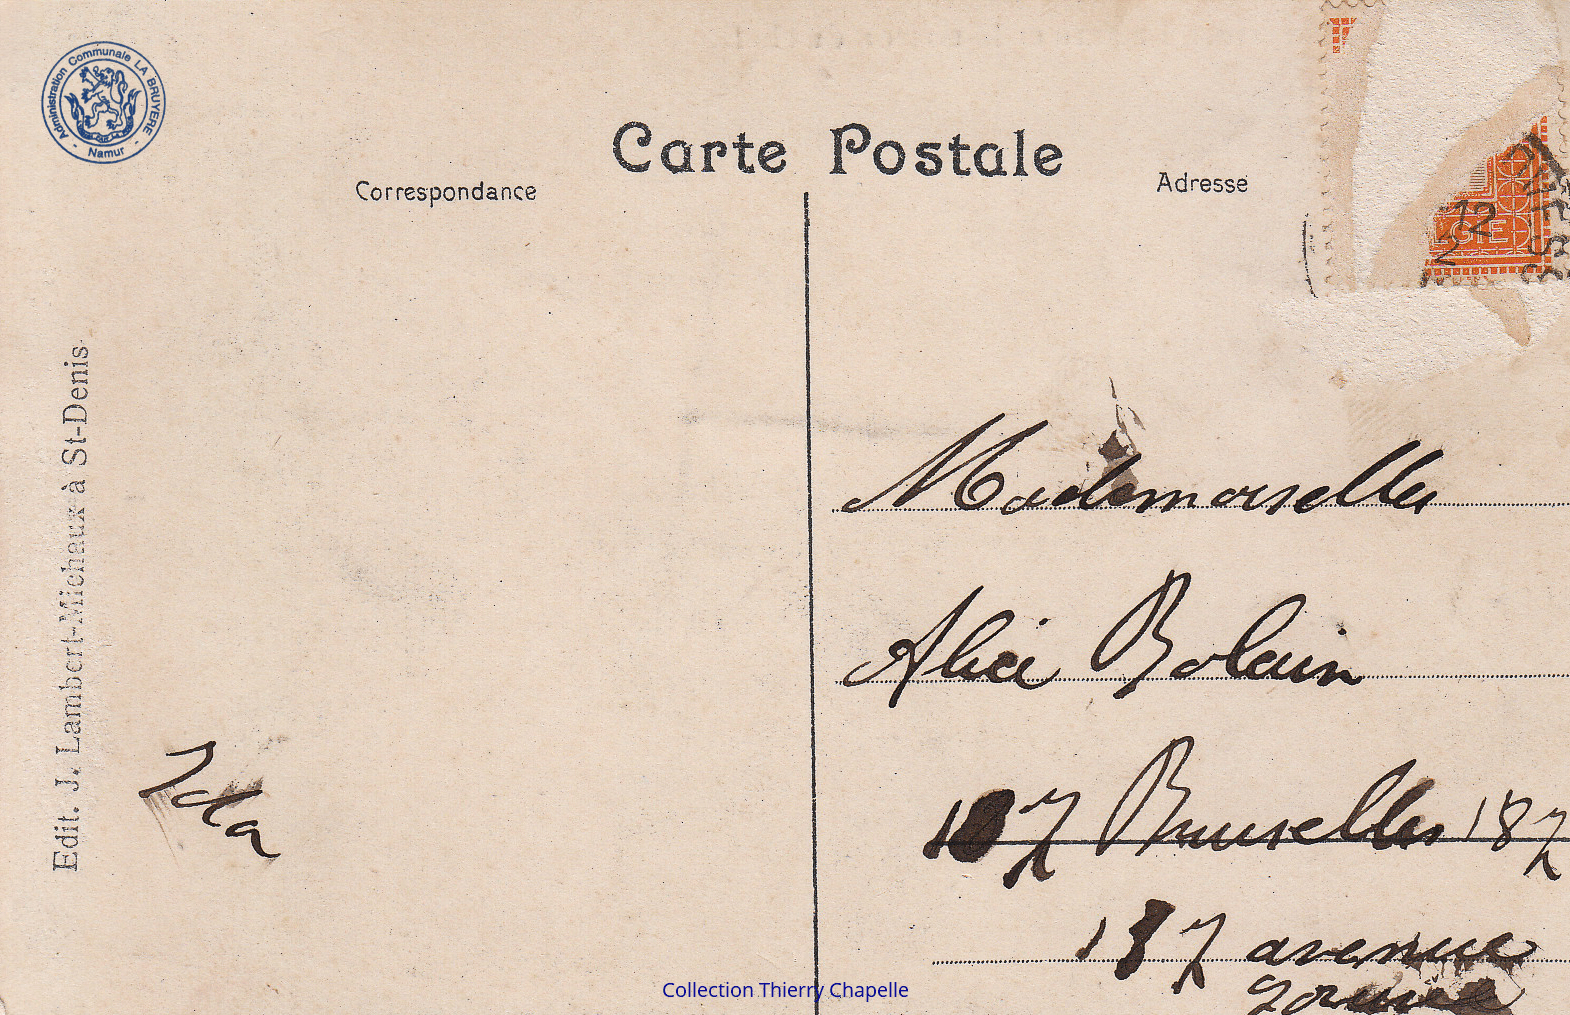 Administration Communale LA BRUYERE
- Namur -
Carte Postale
Correspondance
Adresse
12
2
GIE
Edit. J. Lambert-Michaux à St-Denis.
Mademoiselle
Alice Bolain
187 Bruxelles 187
187 avenue
Ida
Collection Thierry Chapelle